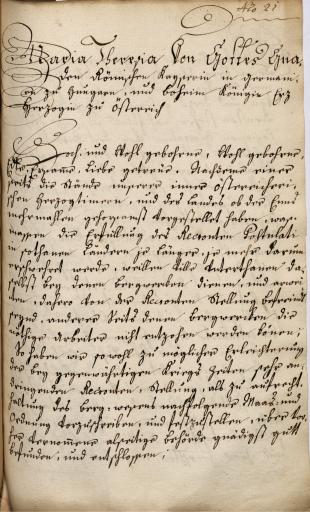 No 21
Maria Theresia Von Gottes Gna,
den Römischen Kayserin in Germani,
en zu Hungarn, und böheim Königin Erz
Herzogin zu Österreich
Hoch, und Wohl gebohrne, Wohl gebohrne,
gestrenge, Liebe getreue. Nachdeme einer
seits die Stände unserer inner Österreichi,
schen Herzogthümern, und des Landes ob der Enns
mehrmahlen gehorsamst vorgestellet haben, was,
massen die Erfüllung des Recrouten Postulati
in sothanen Ländern je länger je mehr darum
erschwehret werde, weillen viele Unterthanen da,
selbst bey denen bergwerken dienen, und arbei
ten, dahero von der Recrouten Stellung befreiet
seynd, anderer Seits denen bergwerken die
nöthige Arbeiter nicht entzohen werden können;
So haben wir sowohl zu möglicher Erleichterung
der bey gegenwärtigen Kriegs Zeiten sehr an,
dringenden Recrouten Stellung, alß zu aufrecht,
haltung des berg-weesens nachfolgende Maas- und
Ordnung vorzuschreiben, und festzustellen, über vor,
her vernomene allseitige behörde gnädigst gutt
befunden, und entschlossen;